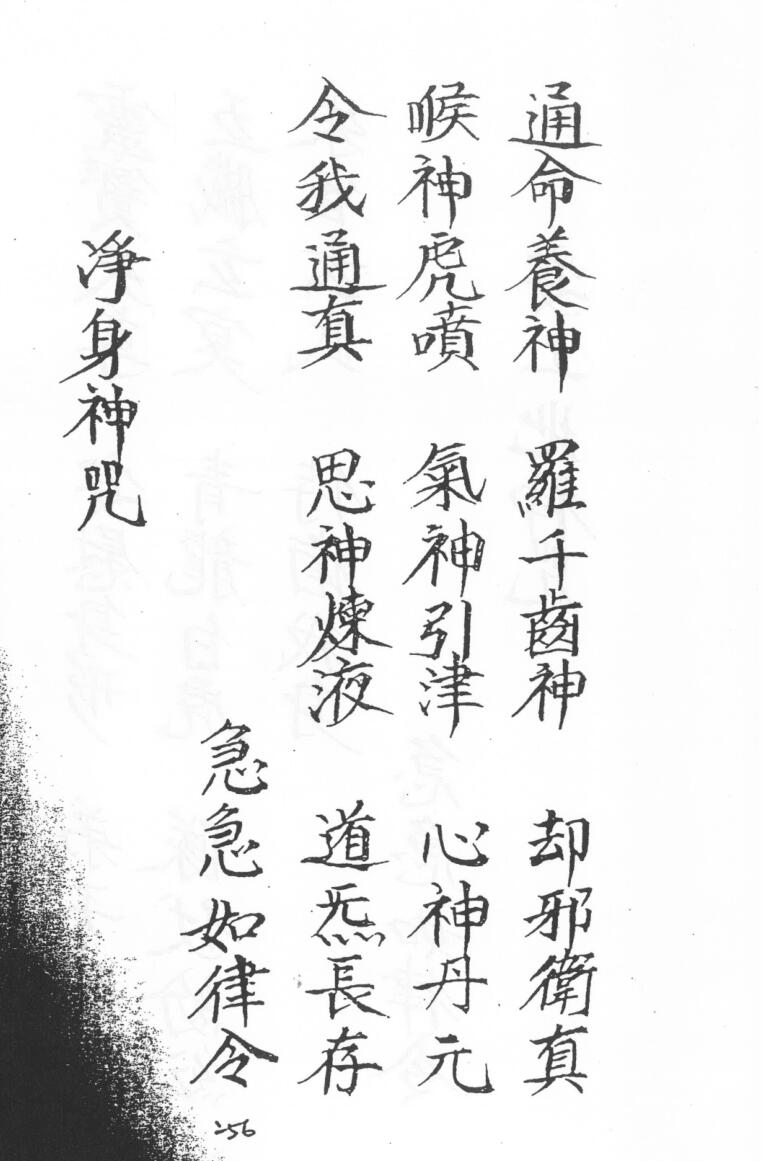 通命養神　羅千齒神　却邪衛真
喉神虎噴　氣神引津　心神丹元
令我通真　思神煉液　道炁長存
急急如律令
净身神咒
256